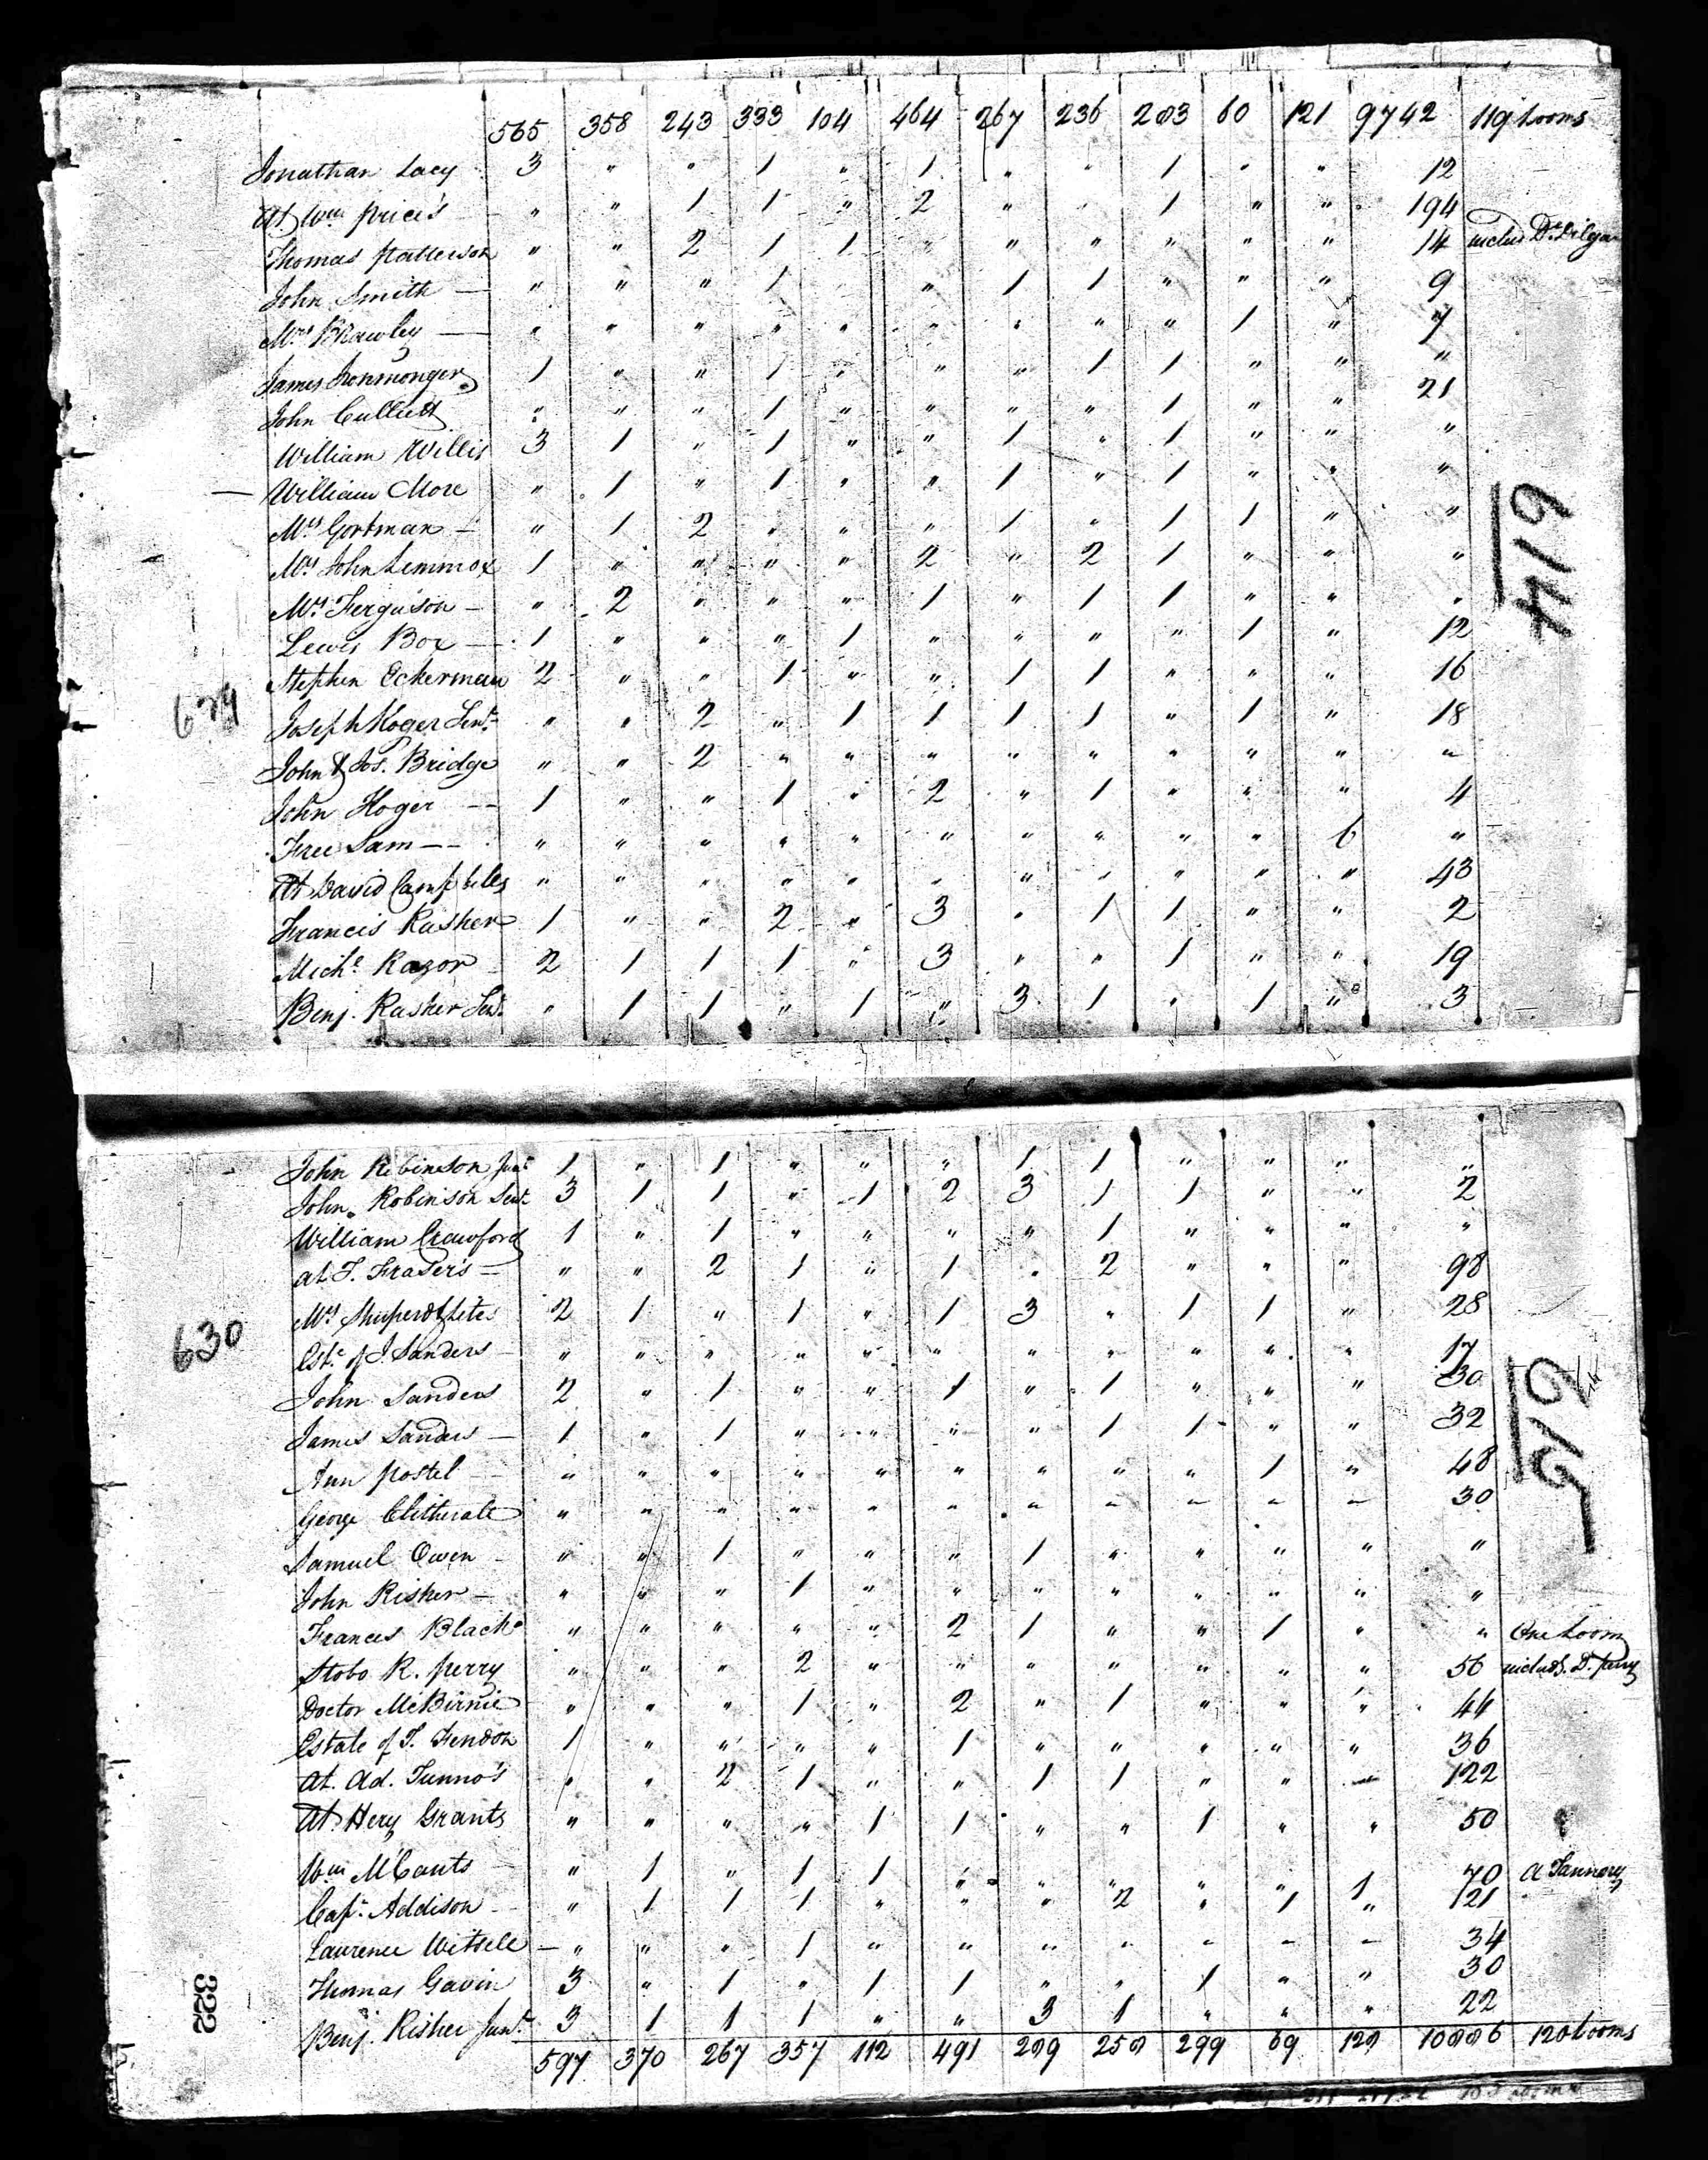 565 358 243 333 104 464 267 236 283 60 121 9742 119 Looms
Jonathan Lacy 3 " " 1 " 1 " " 1 " " 12
At Wm Price's " " 1 1 " 2 " " 1 " " 194
Thomas Patterson " " 2 1 1 " " " " " " 14 includ Dr
John Smith — " " " 1 " " 1 1 " " " 9
Mrs Brawley — " " " " " " " " " 1 " 7
James Ironmonger 1 " " 1 " " " 1 1 " " "
John " " " 1 " " " " 1 " " 21
William Willis 3 1 " 1 " " 1 " 1 " " "
— William More " 1 " 1 " " 1 " 1 " " "
Mrs Gortman — " 1 2 " " " 1 " 1 1 " "
Mrs John Lemmox 1 " " " " 2 " 2 1 " " "
Mrs Ferguson — " 2 " " " 1 " 1 1 " " "
Lewis Box — 1 " " " 1 " " " " 1 " 12
Stephen Eckerman 2 " " 1 " " 1 1 " " " 16
Joseph Koger Senr " " 2 " 1 1 1 1 " 1 " 18
John & Jos. Bridge " " 2 " " " " " " " " "
John Koger -- 1 " " 1 " 2 " 1 " " " 4
Free Sam -- " " " " " " " " " " 6 "
At David Campbells " " " " " " " " " " " 43
Francis Rasher 1 " " 2 " 3 " 1 1 " " 2
Michl Razor 2 1 1 1 " 3 " " 1 " " 19
Benj. Rasher Senr " 1 1 " 1 " 3 1 " 1 " 3
614
629
John Robinson Junr 1 " 1 " " " 1 1 " " " "
John Robinson Senr 3 1 1 " 1 2 3 1 1 " " 2
William Crawford 1 " 1 " " " " 1 " " " "
at F. Fraser's — " " 2 1 " 1 " 2 " " " 98
Mrs 2 1 " 1 " 1 3 " 1 1 " 28
Este of J. Sanders " " " " " " " " " " " 17
John Sanders 2 " 1 " " 1 " 1 " " " 30
James Sanders — 1 " 1 " " " " 1 1 " " 32
Ann Postel " " " " " " " " " 1 " 48
George Clitherale " " " " " " " " " " " 30
Samuel Owen " " 1 " " " 1 " " " " "
John Risher — " " " 1 " " " " " " " "
Frances Black " " " " " 2 1 " " 1 " " One Loom
Stobo R. Perry " " " 2 " " " " " " " 56 includ. D. Perry
Doctor McBirnie " " " 1 " 2 " 1 " " " 44
Estate of T. Fendon 1 " " " " 1 " " " " " 36
At. Ad. Tunno's " " 2 1 " " 1 1 " " " 122
At Hery Grants " " " " 1 1 " " 1 " " 50
Wm McCants " 1 " 1 1 " " " " " 1 70 A Tannery
Capt. Addison " 1 1 1 " " " 2 " 1 " 121
Laurence Witsell — " " " 1 " " " " " " " 34
Thomas Gavin 3 " 1 " 1 1 " " 1 " " 30
Benj. Risher Junr 3 1 1 1 " " 3 1 " " " 22
597 370 267 357 112 491 299 258 299 69 128 10886 120 Looms
630
615
322